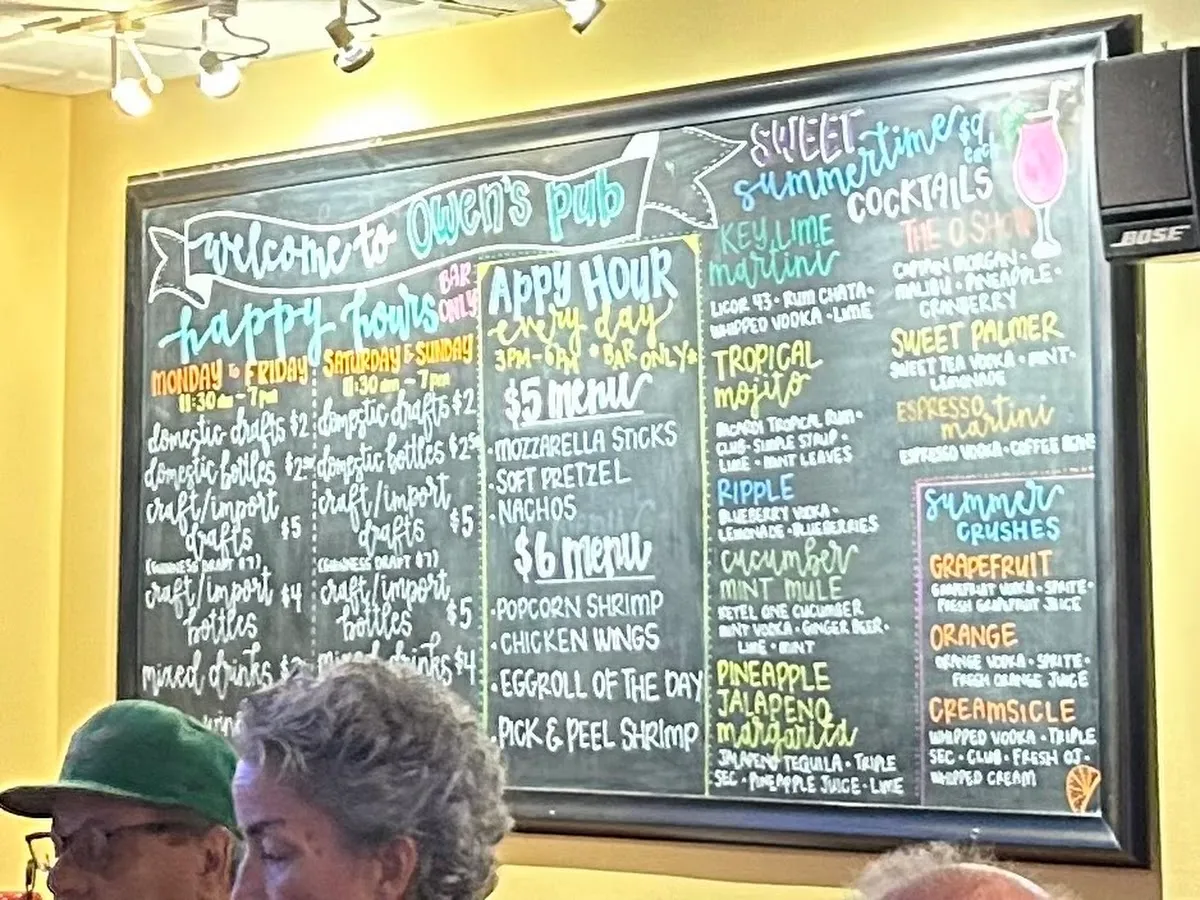 welcome to Owen's pub
happy hours BAR ONLY
MONDAY to FRIDAY
11:30 am - 7pm
domestic drafts $2
domestic bottles
craft/import
drafts $5
(GUINNESS DRAFT $7)
craft/import $4
bottles
mixed drinks
SATURDAY & SUNDAY
11:30 am - 7pm
domestic drafts $2
domestic bottles $2.50
craft/import
drafts $5
(GUINNESS DRAFT $7)
craft/import
bottles $5
mixed drinks $4
APPY HOUR
every day
3PM-6PM * BAR ONLY*
$5 menu
• MOZZARELLA STICKS
• SOFT PRETZEL
• NACHOS
$6 menu
• POPCORN SHRIMP
• CHICKEN WINGS
• EGGROLL OF THE DAY
• PICK & PEEL SHRIMP
SWEET
summertime $9 each
COCKTAILS
KEY LIME
martini
LICOR 43 • RUM CHATA •
WHIPPED VODKA • LIME
TROPICAL
mojito
BACARDI TROPICAL RUM •
CLUB • SIMPLE SYRUP •
LIME • MINT LEAVES
RIPPLE
BLUEBERRY VODKA •
LEMONADE • BLUEBERRIES
cucumber
MINT MULE
KETEL ONE CUCUMBER
MINT VODKA • GINGER BEER •
LIME • MINT
PINEAPPLE
JALAPENO
margarita
JALAPENO TEQUILA • TRIPLE
SEC • PINEAPPLE JUICE • LIME
THE O SHOW
CAPTAIN MORGAN •
MALIBU • PINEAPPLE •
CRANBERRY
SWEET PALMER
SWEET TEA VODKA • MINT •
LEMONADE
ESPRESSO
martini
ESPRESSO VODKA • COFFEE
summer
CRUSHES
GRAPEFRUIT
GRAPEFRUIT VODKA • SPRITE •
FRESH GRAPEFRUIT JUICE
ORANGE
ORANGE VODKA • SPRITE •
FRESH ORANGE JUICE
CREAMSICLE
WHIPPED VODKA • TRIPLE
SEC • CLUB • FRESH OJ •
WHIPPED CREAM
BOSE